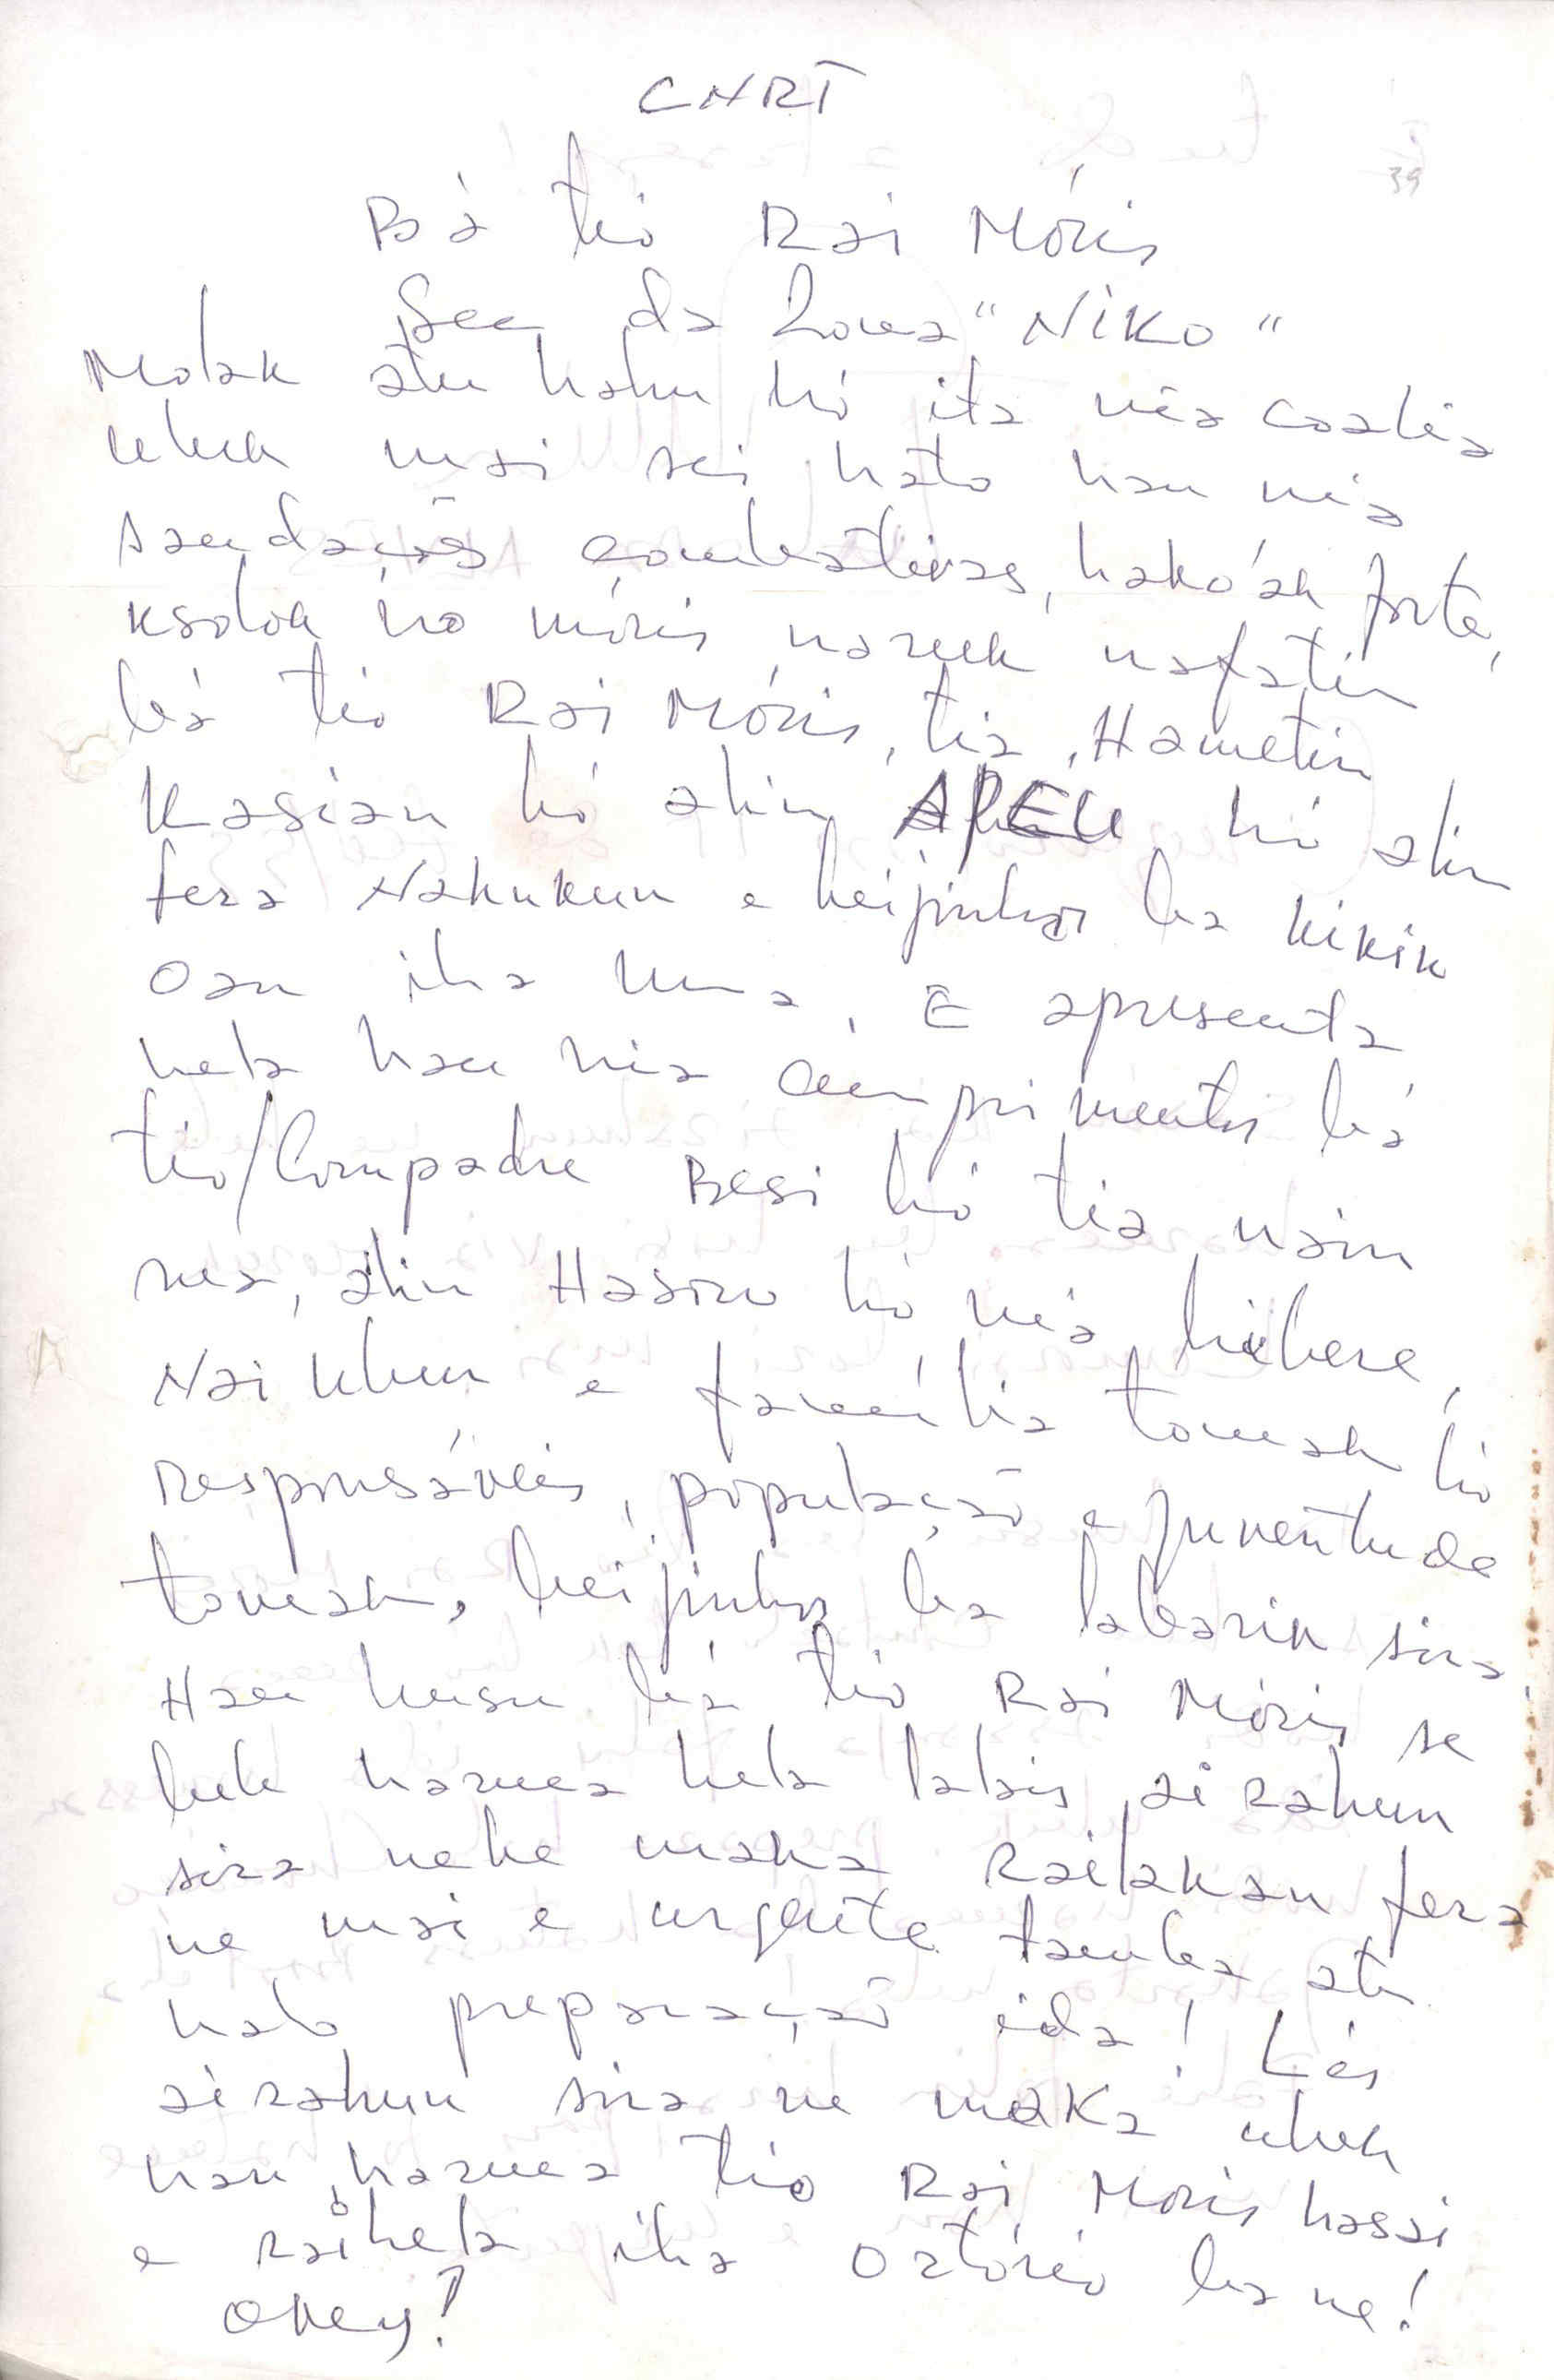 CNRT
39
Bá tio Rai Móris
Sec da Zona "NIKO"
Molok atu hahu hó ita nia coalia
uluk mai sei hato hau nia
saudações combativas, hakoák forte,
ksolok ho móris naruk nafatin
bá tio Rai Móris, tia Hametin
Kasian hó alin APEU hó alin
fera Nakukun e beijinhos ba kikik
oan iha uma. E apresenta
hela hau nia cumprimentos bá
tio/Compadre Besi hó tia nain
rua, alin Hasoru hó nia behere,
Nai Ulun e família tomak hó
responsáveis, população e juventude
tomak, beijinhos ba labarik sira
Hau husu bá tio Rai Móris se
bele harua hela lalais ai rahun
sira nebe maka Railakan fera
ne mai e urgente tamba atu
halo preparação ida! Liás
ai rahun sira ne maka uluk
hau harua tio Rai Moris hasai
e raihela iha Ozório ba ne!
Okey!